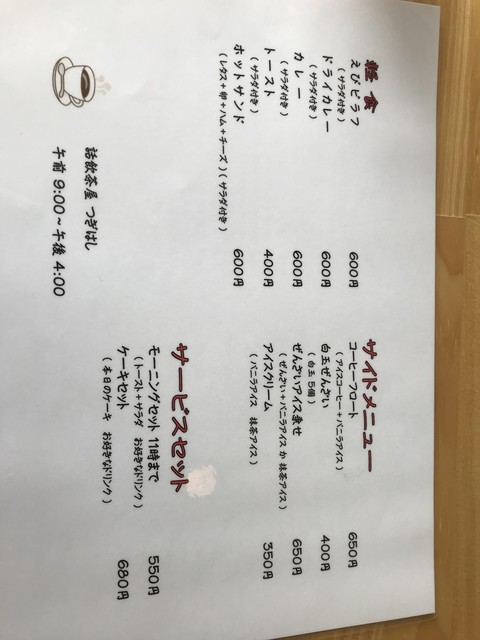 軽食
えびピラフ 600円
(サラダ付き)
ドライカレー 600円
(サラダ付き)
カレー 600円
(サラダ付き)
トースト 400円
(サラダ付き)
ホットサンド 600円
(レタス+卵+ハム+チーズ)(サラダ付き)
サイドメニュー
コーヒーフロート 650円
(アイスコーヒー+バニラアイス)
白玉ぜんざい 400円
(白玉 5個)
ぜんざいアイス乗せ 650円
(ぜんざい+バニラアイス か 抹茶アイス)
アイスクリーム 350円
(バニラアイス 抹茶アイス)
サービスセット
モーニングセット 11時まで 550円
(トースト+サラダ お好きなドリンク)
ケーキセット 680円
(本日のケーキ お好きなドリンク)
話飲茶屋 つぎはし
午前 9:00~午後 4:00